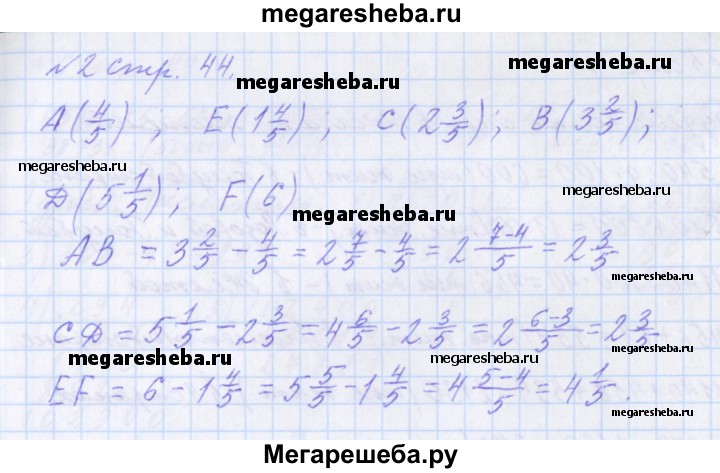 megaresheba.ru
N2 стр. 44.
megaresheba.ru
megaresheba.ru
A(4/5); E(1 4/5); C(2 3/5); B(3 2/5);
megaresheba.ru
megaresheba.ru
D(5 1/5); F(6)
AB = 3 2/5 - 4/5 = 2 7/5 - 4/5 = 2 (7-4)/5 = 2 3/5
megaresheba.ru
CD = 5 1/5 - 2 3/5 = 4 6/5 - 2 3/5 = 2 (6-3)/5 = 2 3/5.
megaresheba.ru
megaresheba.ru
EF = 6 - 1 4/5 = 5 5/5 - 1 4/5 = 4 (5-4)/5 = 4 1/5.
megaresheba.ru
Мегарешеба.ру